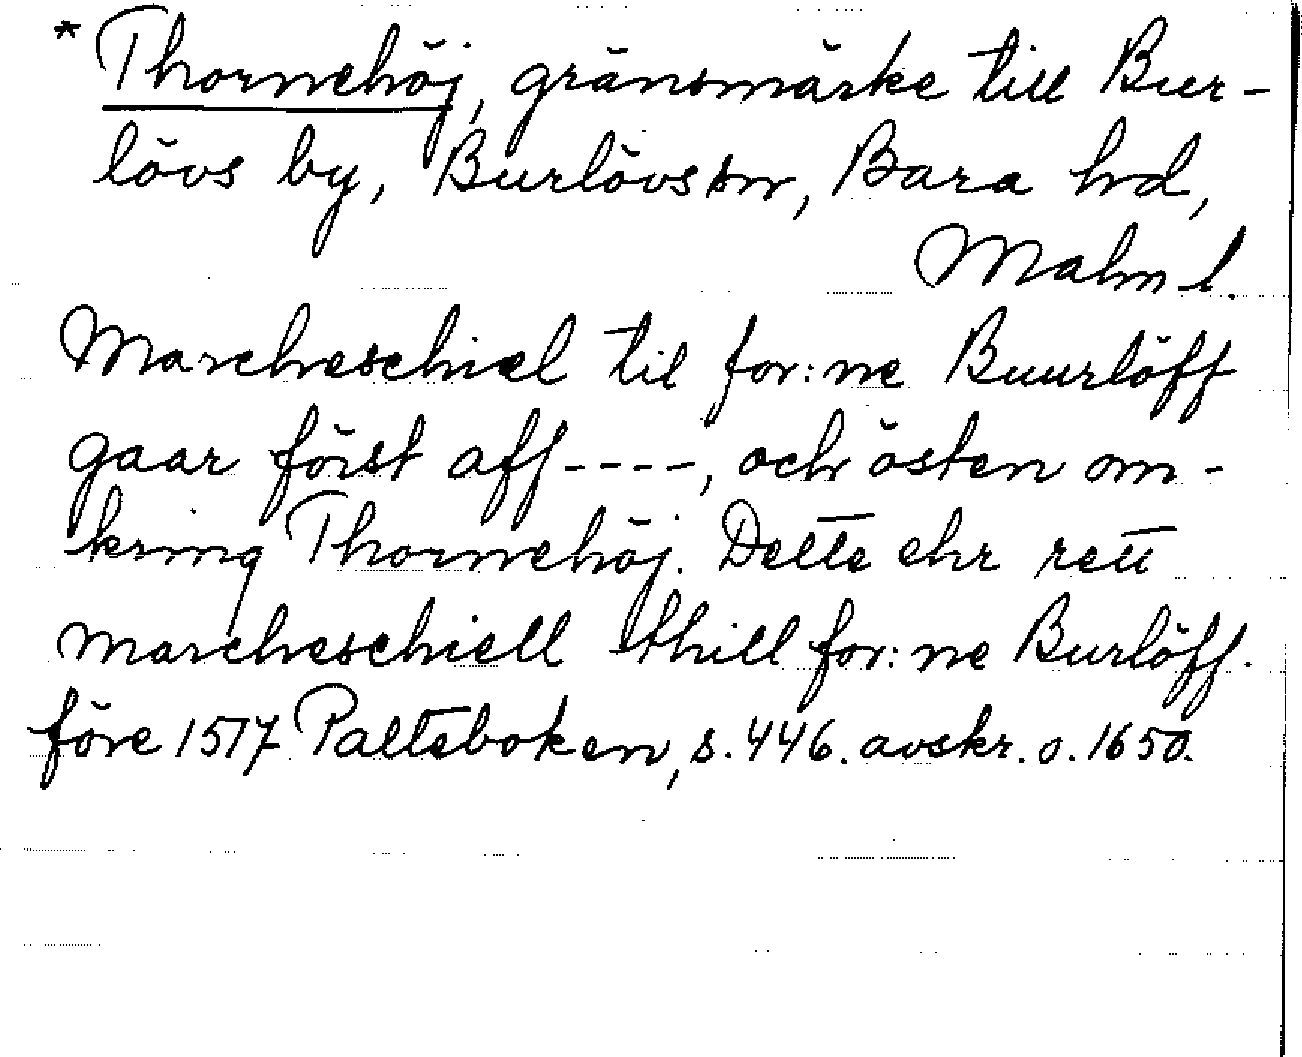 * Thornehöj, gränsmärke till Bur-
lövs by, Burlövs sn, Bara hd,
Malm l.
Marcheschiel til for:ne Buurlöff
gaar först aff----, och östen om-
kring Thornehöj. Dette ehr rett
marcheschiell thill for:ne Burlöff.
före 1517 Palteboken, s. 446. avskr. o. 1650.